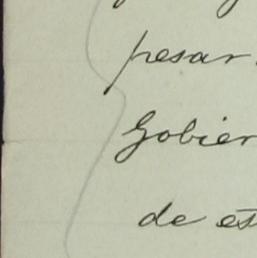 pesar
Gobier
de es